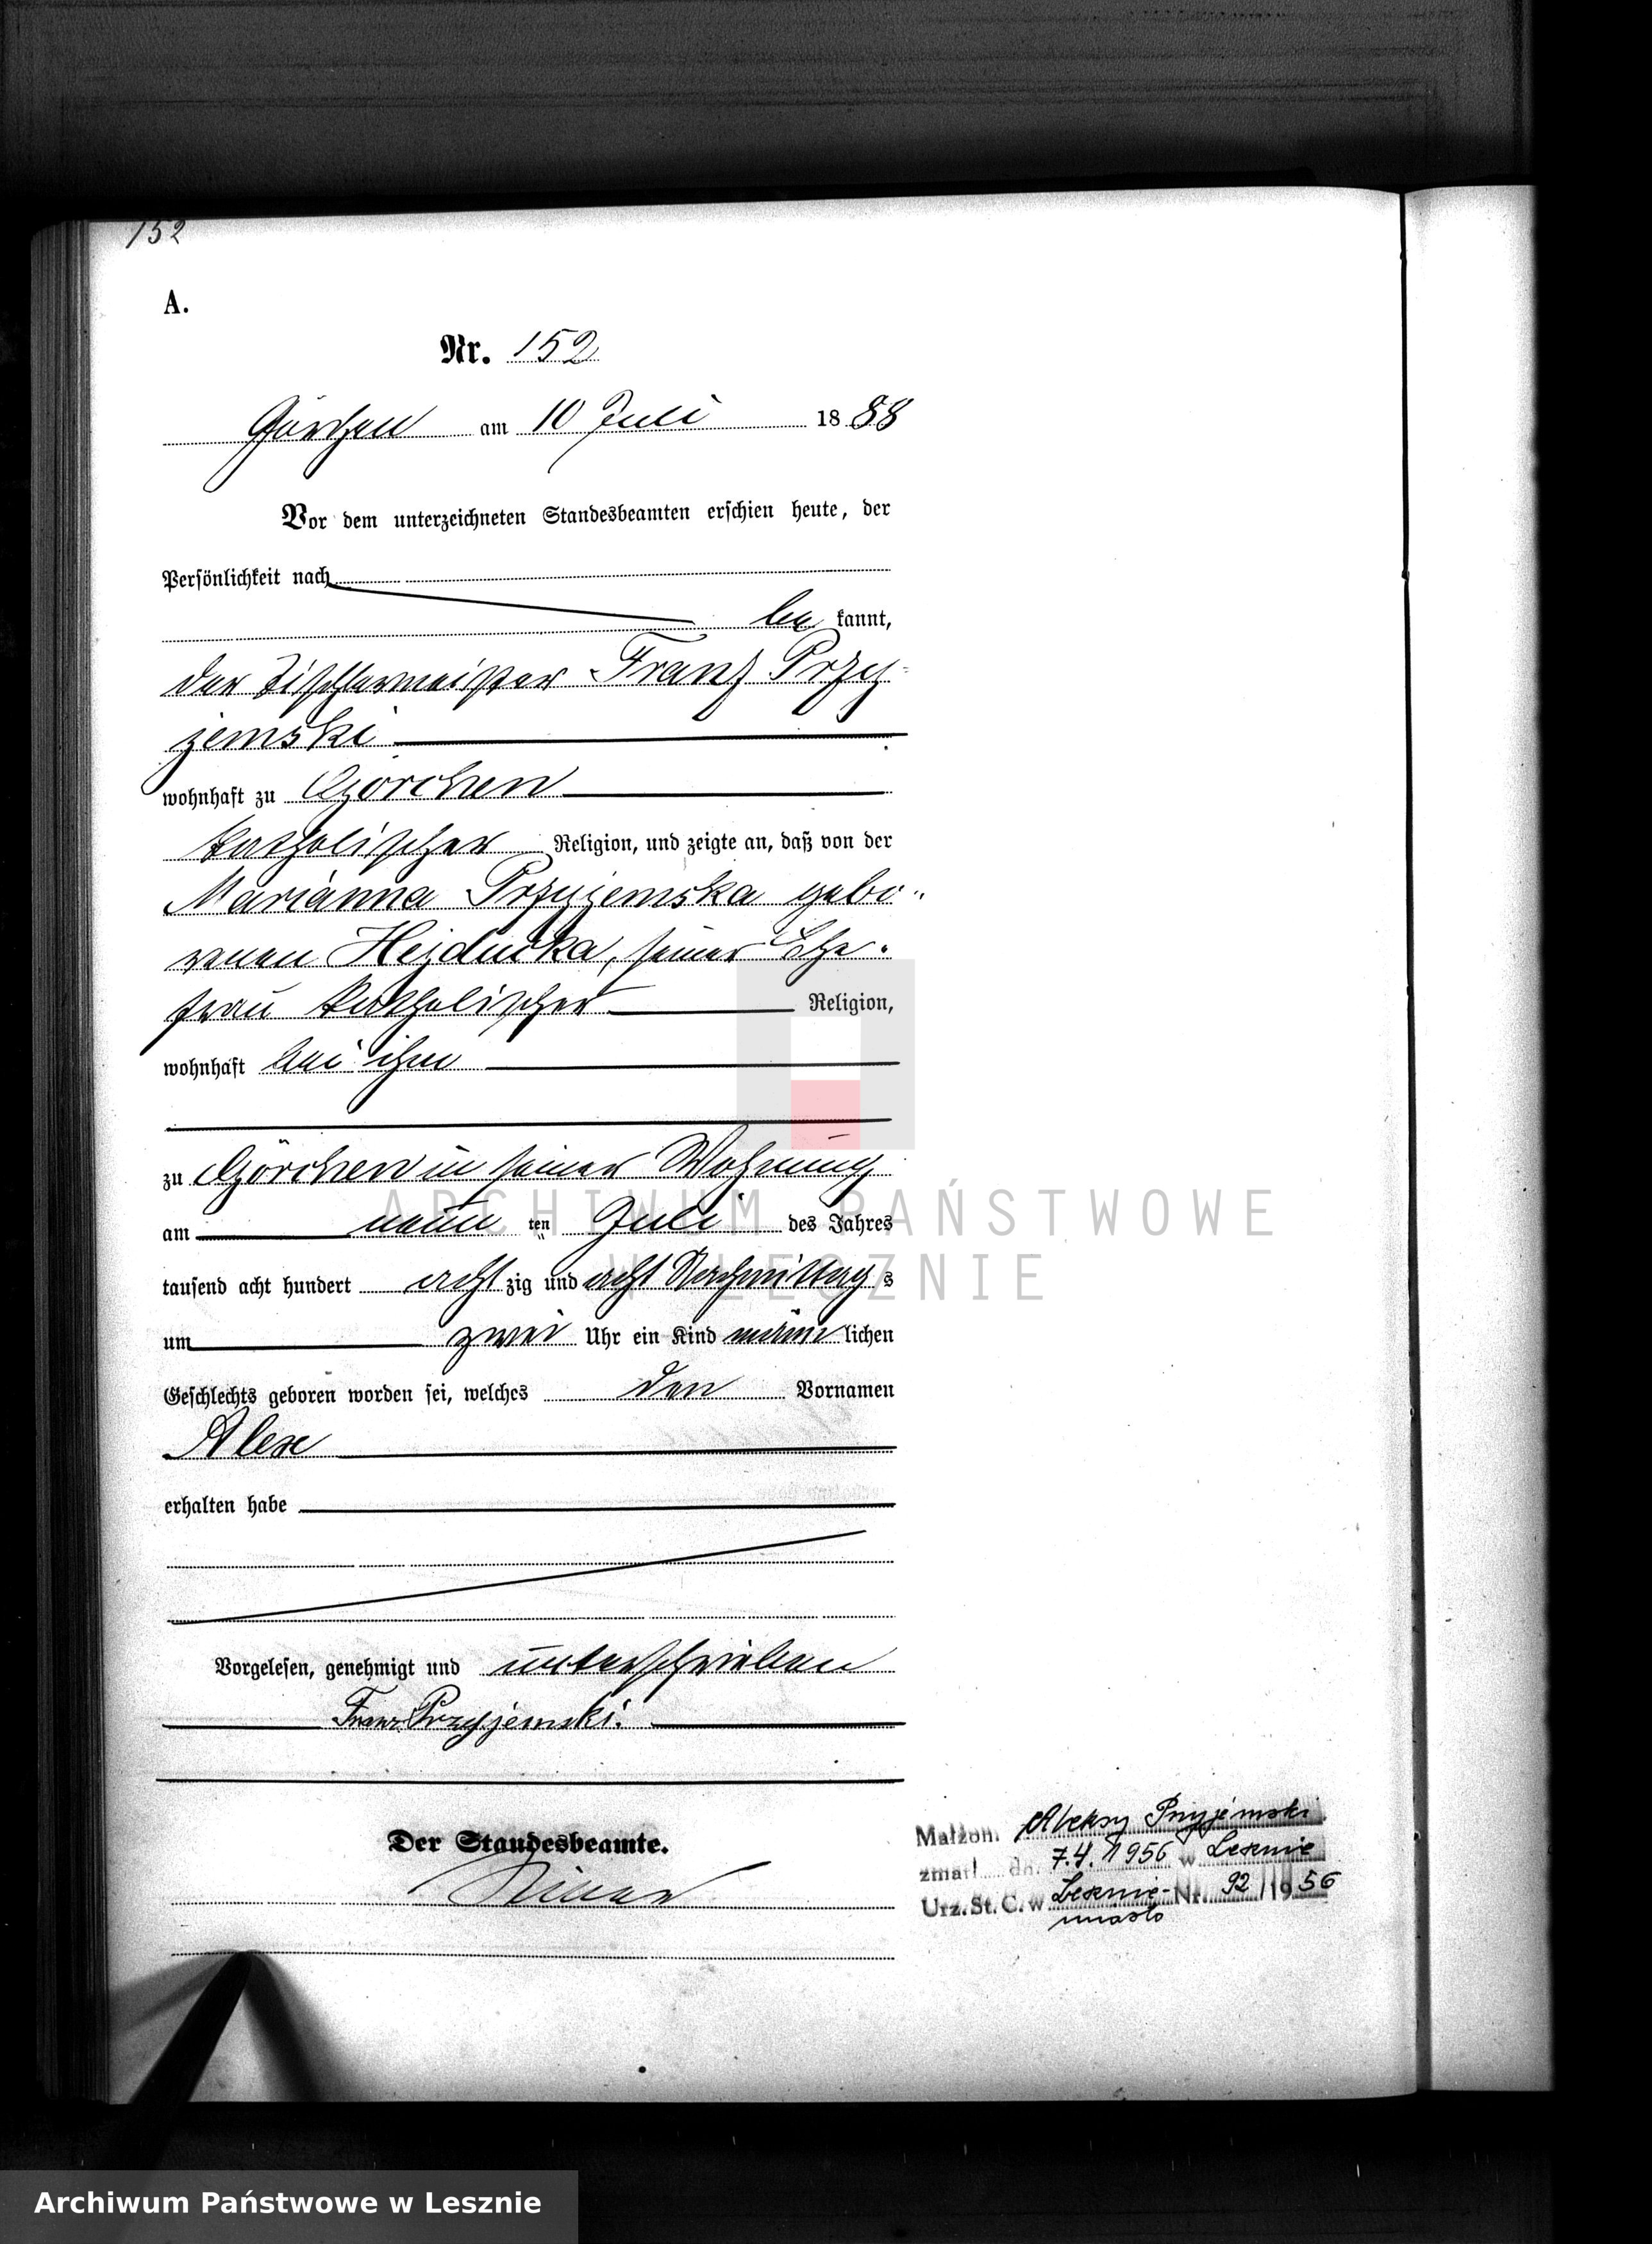 152
A.
Nr. 152
Görchen am 10 Juli 1888
Vor dem unterzeichneten Standesbeamten erschien heute, der
Persönlichkeit nach
be kannt,
der Tischlermeister Franz Przy-
jemski
wohnhaft zu Görchen
katholischer Religion, und zeigte an, daß von der
Marianna Przyjemska gebo-
renen Hejducka, seiner Ehe-
frau katholischer Religion,
wohnhaft bei ihm
zu Görchen in seiner Wohnung
am neun ten Juli des Jahres
tausend acht hundert acht zig und acht Nachmittag s
um zwei Uhr ein Kind männ lichen
Geschlechts geboren worden sei, welches den Vornamen
Alex
erhalten habe
Vorgelesen, genehmigt und unterschrieben
Franz Przyjemski.
Der Standesbeamte.
Małżon. Aleksy Przyjemski
zmarł dn. 7.4.1956 w Lesznie
Urz. St. C. w Lesznie- Nr. 92/1956
miasto
ARCHIWUM PAŃSTWOWE
W LESZNIE
Archiwum Państwowe w Lesznie